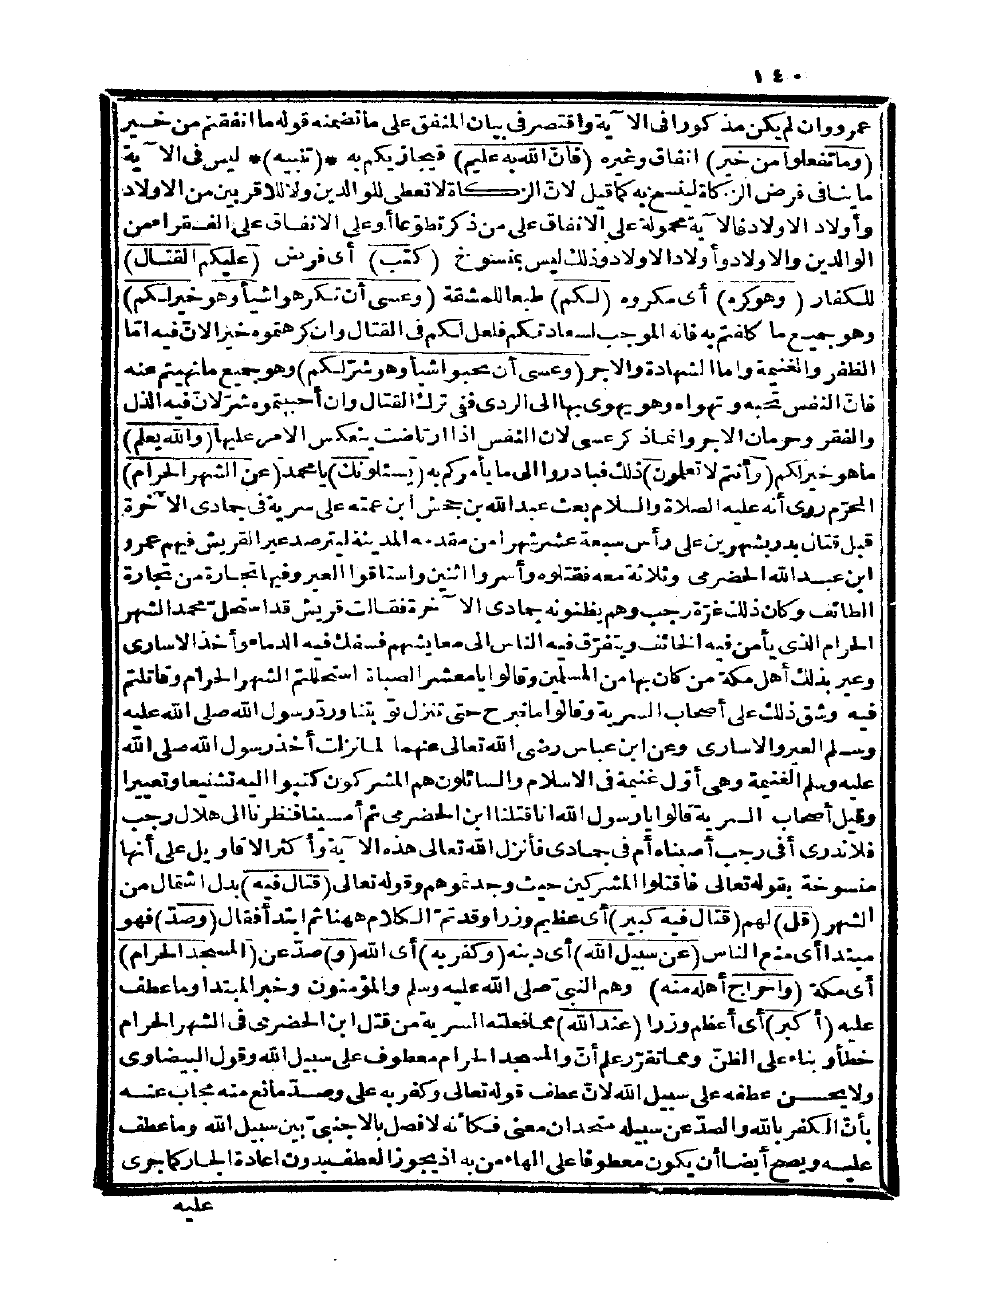 ١٤٠
عمرو وان لم يكن مذكورا فى الآية واقتصر فى بيان المنفق على ما تضمنه قوله ما انفقتم من خير
(وما تفعلوا من خير) انفاق وغيره (فان الله به عليم) فيجازيكم به *(تنبيه)* ليس فى الآية
ما ينافى فرض الزكاة لينسخ به كما قيل لان الزكاة لا تعطى للوالدين ولا للاقربين من الاولاد
وأولاد الاولاد فالآية محمولة على الانفاق على من ذكر تطوعا أو على الانفاق على الفقراء من
الوالدين والاولاد وأولاد الاولاد وذلك ليس بمنسوخ (كتب) أى فرض (عليكم القتال)
للكفار (وهو كره) أى مكروه (لكم) طبعا للمشقة (وعسى أن تكرهوا شيأ وهو خير لكم)
وهو جميع ما كلفتم به فانه الموجب لسعادتكم فلعل لكم فى القتال وان كرهتموه خيرا لانّ فيه امّا
الظفر والغنيمة واما الشهادة والاجر (وعسى أن تحبوا شيأ وهو شرّ لكم) وهو جميع ما نهيتم عنه
فانّ النفس تحبه وتهواه وهو يهوى بها الى الردى ففى ترك القتال وان أحببتموه شرّ لانّ فيه الذل
والفقر وحرمان الاجر وانما ذكر عسى لان النفس اذا ارتاضت ينعكس الامر عليها (والله يعلم)
ما هو خير لكم (وأنتم لا تعلمون) ذلك فبادروا الى ما يأمركم به (يسئلونك) يا محمد (عن الشهر الحرام)
المحرّم روى أنه عليه الصلاة والسلام بعث عبد الله بن جحش ابن عمته على سرية فى جمادى الآخرة
قبل قتال بدر بشهرين على رأس سبعة عشر شهرا من مقدمه المدينة ليترصد عير القريش فيهم عمرو
ابن عبد الله الحضرمى وثلاثة معه فقتلوه وأسروا اثنين واستاقوا العير وفيها تجارة من تجارة
الطائف وكان ذلك غرّة رجب وهم يظنونه جمادى الآخرة فقالت قريش قد استحلّ محمد الشهر
الحرام الذى يأمن فيه الخائف ويتفرّق فيه الناس الى معايشهم فسفك فيه الدماء وأخذ الاسارى
وعير بذلك أهل مكة من كان بها من المسلمين وقالوا يا معشر الصباة استحللتم الشهر الحرام وقاتلتم
فيه وشق ذلك على أصحاب السرية وقالوا ما نبرح حتى تنزل توبتنا وردّ رسول الله صلى الله عليه
وسلم العير والاسارى وعن ابن عباس رضى الله تعالى عنهما لما نزلت أخذ رسول الله صلى الله
عليه وسلم الغنيمة وهى أوّل غنيمة فى الاسلام والسائلون هم المشركون كتبوا اليه تشنيعا وتعييرا
وقيل أصحاب السرية قالوا يا رسول الله انا قتلنا ابن الحضرمى ثم أمسينا فنظرنا الى هلال رجب
فلا ندرى أفى رجب أصبناه أم فى جمادى فأنزل الله تعالى هذه الآية وأكثر الاقاويل على أنها
منسوخة بقوله تعالى فاقتلوا المشركين حيث وجدتموهم وقوله تعالى (قتال فيه) بدل اشتمال من
الشهر (قل) لهم (قتال فيه كبير) أى عظيم وزرا وقد تمّ الكلام ههنا ثم ابتدأ فقال (وصدّ) فهو
مبتدأ أى منع الناس (عن سبيل الله) أى دينه (وكفر به) أى الله (و) صدّ عن (المسجد الحرام)
أى مكة (واخراج أهله منه) وهم النبىّ صلى الله عليه وسلم والمؤمنون وخبر المبتدا وما عطف
عليه (أكبر) أى أعظم وزرا (عند الله) مما فعلته السرية من قتل ابن الحضرى فى الشهر الحرام
خطأ وبناء على الظنّ ومما تقرّر علم أنّ والمسجد الحرام معطوف على سبيل الله وقول البيضاوى
ولا يحسن عطفه على سبيل الله لانّ عطف قوله تعالى وكفر به على وصدّ مانع منه مجاب عنه
بأنّ الكفر بالله والصدّ عن سبيله متحدان معنى فكأنه لا فصل بالاجنبىّ بين سبيل الله وما عطف
عليه ويصح أيضا أن يكون معطوفا على الهاء من به اذ يجوز العطف بدون اعادة الجار كما جرى
عليه